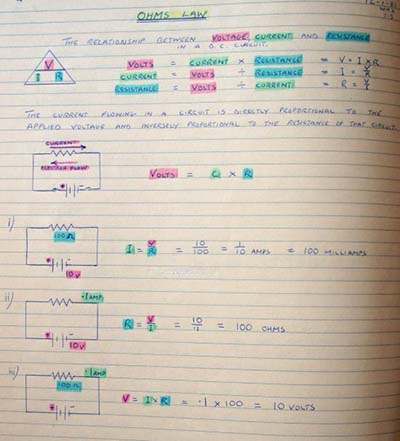 OHMS LAW
THE RELATIONSHIP BETWEEN VOLTAGE, CURRENT AND RESISTANCE
IN A D.C. CIRCUIT.
V
I R
VOLTS = CURRENT × RESISTANCE = V = I × R
CURRENT = VOLTS ÷ RESISTANCE = I = V/R
RESISTANCE = VOLTS ÷ CURRENT = R = V/I
THE CURRENT FLOWING IN A CIRCUIT IS DIRECTLY PROPORTIONAL TO THE
APPLIED VOLTAGE AND INVERSELY PROPORTIONAL TO THE RESISTANCE OF THAT CIRCUIT.
CURRENT
ELECTRON FLOW
VOLTS = C × R
i)
100Ω
10V
I = V/R = 10/100 = 1/10 AMPS = 100 MILLIAMPS
ii)
.1 AMP
10V
R = V/I = 10/.1 = 100 OHMS
iii)
.1 AMP
100Ω
V = I × R = .1 × 100 = 10 VOLTS